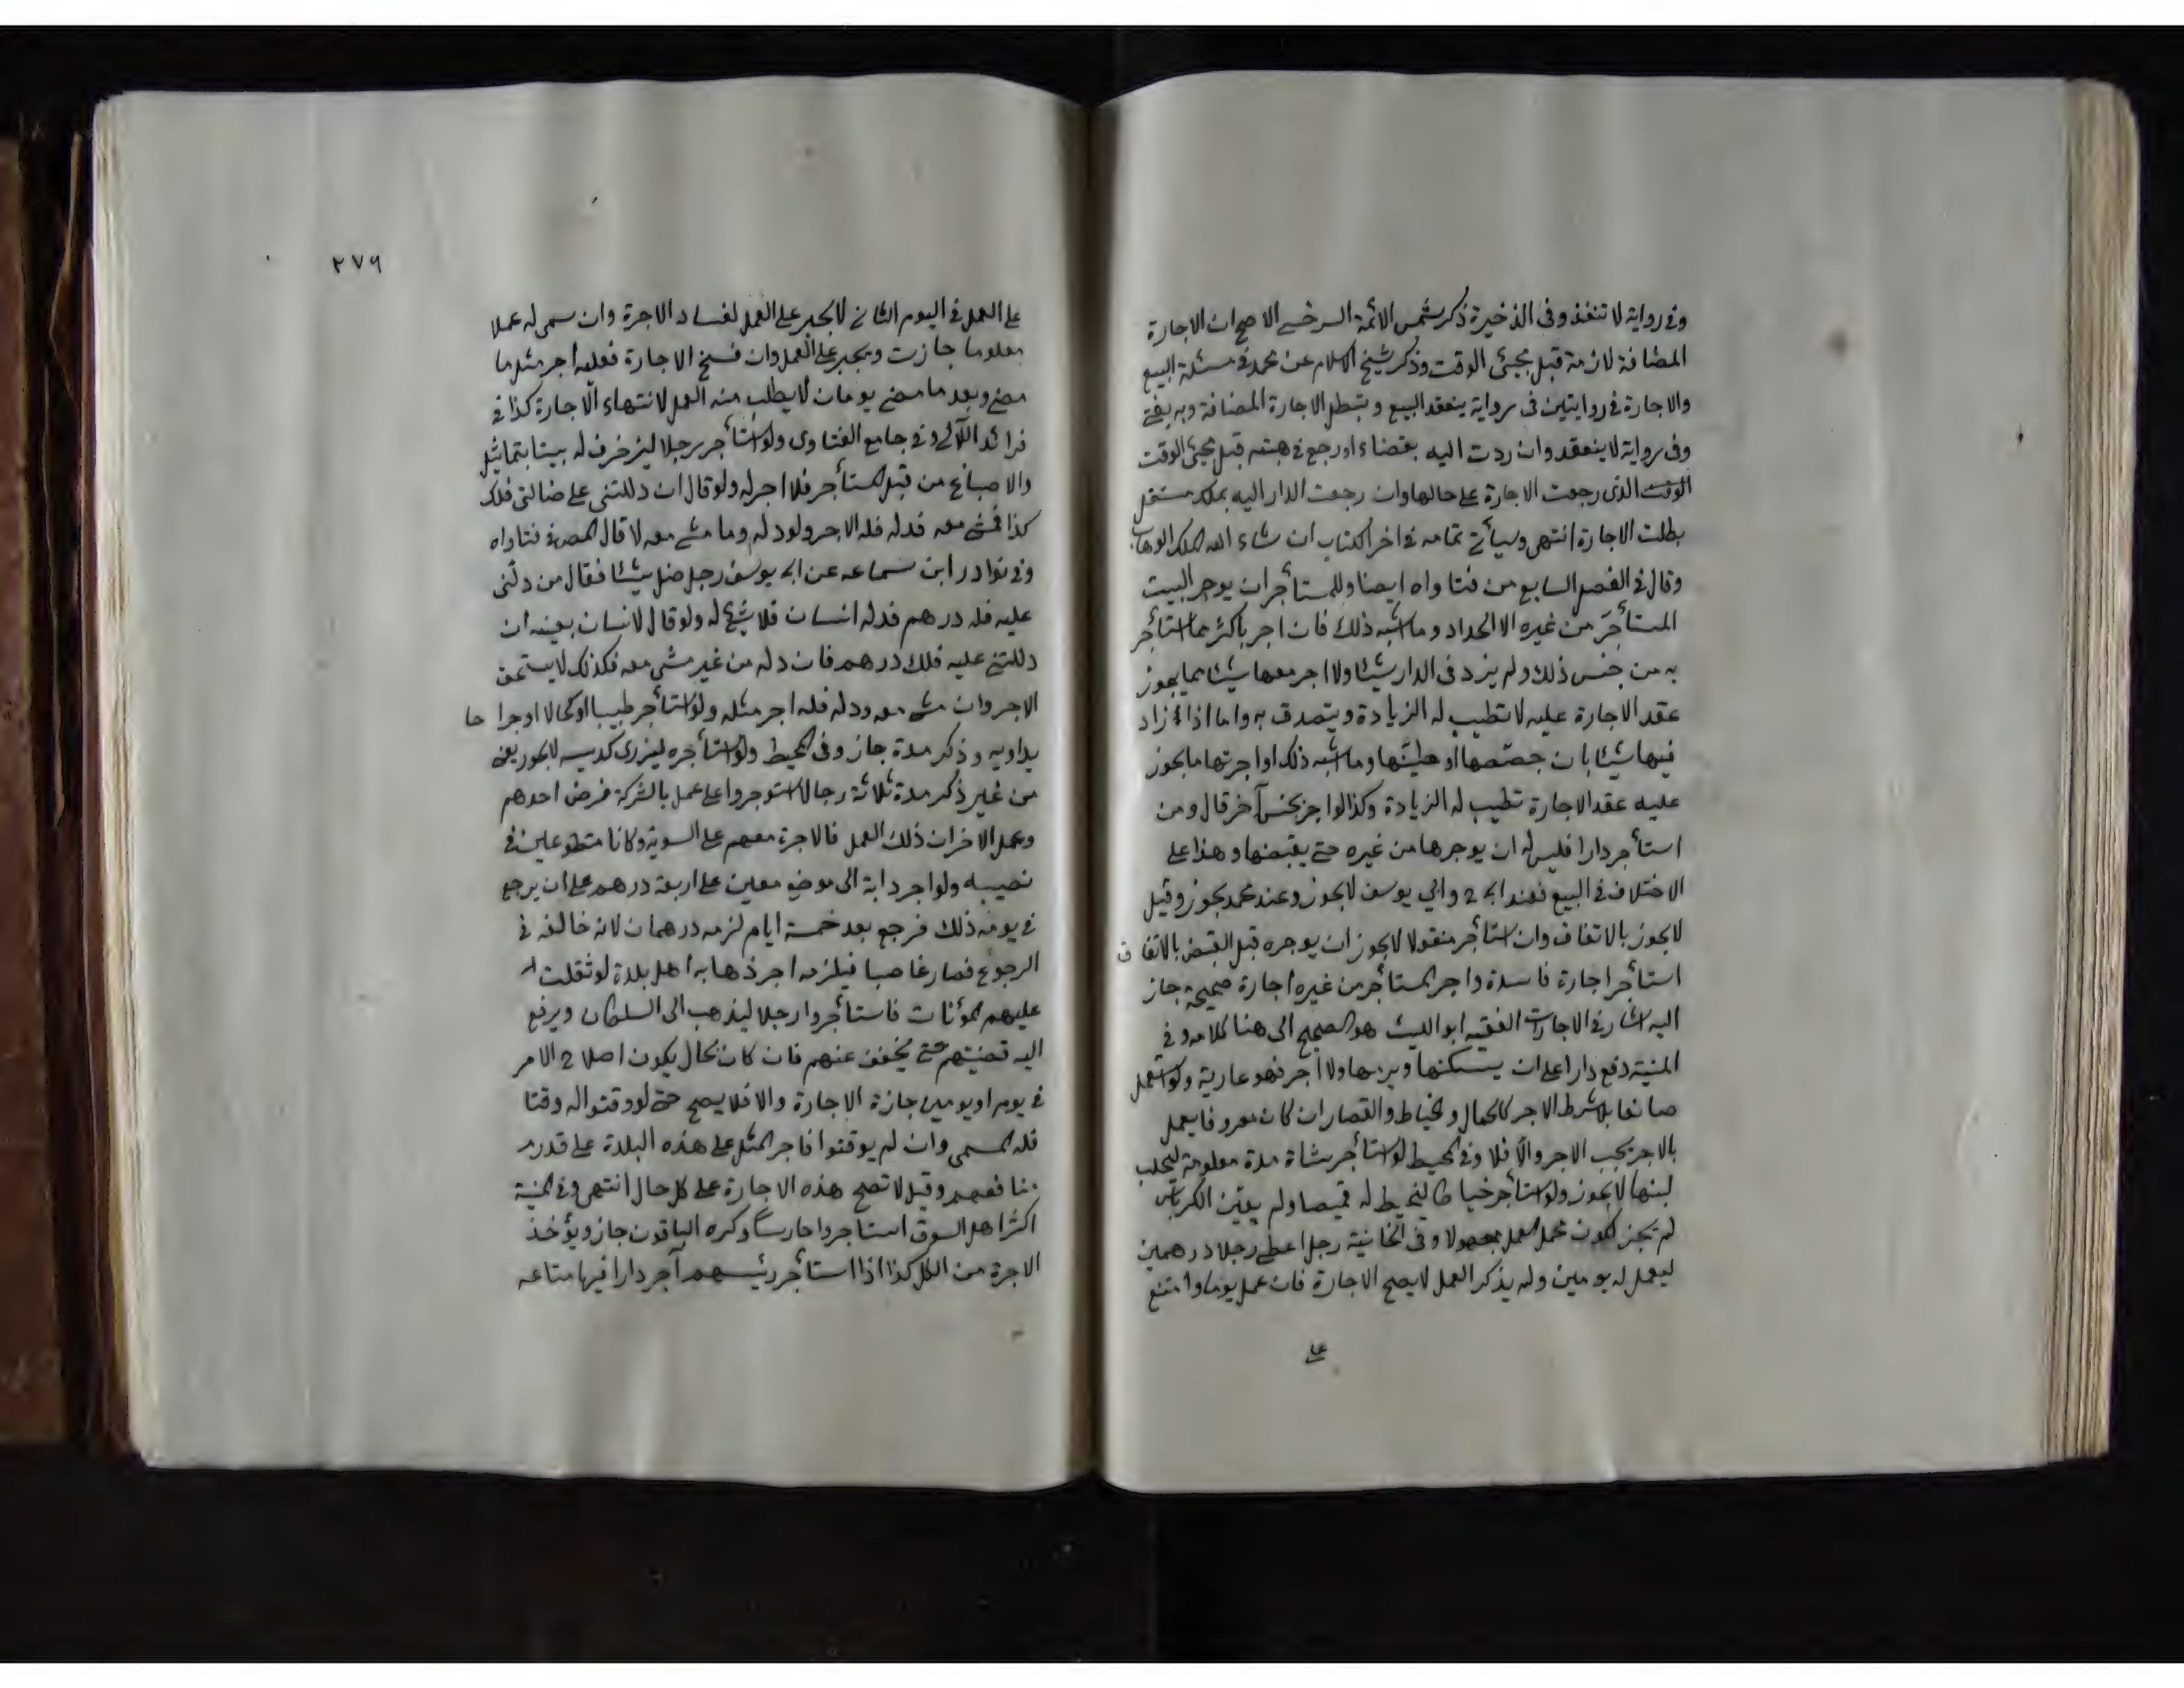 وفى رواية لا تنفذ وفى الذخيرة ذكر شمس الائمة السرخسى الاصح ان الاجارة
المضافة لازمة قبل مجيئ الوقت وذكر شيخ الاسلام عن محمد فى مسئلة البيع
والاجارة فى روايتين فى رواية ينعقد البيع وتبطل الاجارة المضافة وبه يفتى
وفى رواية لا ينعقد وان ردت اليه بقضاء او رجع فى هبته قبل مجيئ الوقت
الوقت الذى رجعت الاجارة على حالها وان رجعت الدار اليه بملك مستقل
بطلت الاجارة انتهى وسيأتى تمامه فى اخر الكتاب ان شاء الله الملك الوهاب
وقال فى الفصل السابع من فتاواه ايضا وللمستأجر ان يوجر البيت
المستأجَر من غيره الا الحداد وما اشبه ذلك فان اجر باكثر مما استأجر
به من جنس ذلك ولم يزد فى الدار شيئا ولا اجر معها شيئا مما يجوز
عقد الاجارة عليه لا تطيب له الزيادة ويتصدق به واما اذا زاد
فيها شيئا بان جصصها او طينها وما اشبه ذلك او اجرتها ما يجوز
عليه عقد الاجارة تطيب له الزيادة وكذا لو اجر بجنس آخر قال ومن
استأجر دارا فليس له ان يوجرها من غيره حتى يقبضها وهذا على
الاختلاف فى البيع فعند ابى ح وابي يوسف لا يجوز وعند محمد يجوز وقيل
لا يجوز بالاتفاق وان استأجر منقولا لا يجوز ان يوجره قبل القبض بالاتفاق
استأجر اجارة فاسدة واجر المستأجر من غيره اجارة صحيحة جاز
اليه اشار فى الاجارات الفقيه ابو الليث هو الصحيح الى هنا كلامه وفى
المنية دفع دارا على ان يسكنها ويرمها ولا اجر فهو عارية ولو استعمل
صانعا بلا شرط الاجر كالحمال والخياط والقصار ان كان معروفا يعمل
بالاجر يجب الاجر والّا فلا وفى المحيط لو استأجر شاة مدة معلومة ليحلب
لبنها لا يجوز ولو استأجر خياطا ليخيط له قميصا ولم يعيّن الكرباس
لم يجز لكون محمل العمل مجهولا وفى الخانية رجل اعطى رجلا درهمين
ليعمل له يومين ولم يذكر العمل لا يصح الاجارة فان عمل يوما وامتنع
على
٢٧٦
على العمل فى اليوم الثانى لا يجبر على العمل لفساد الاجرة وان سمى له عملا
معلوما جازت ويجبر على العمل وان فسخ الاجارة فعليه اجر مثل ما
مضى وبعد ما مضى يومان لا يطلب منه العمل لانتهاء الاجارة كذا فى
فرائد اللآلى وفى جامع الفتاوى ولو استأجر رجلا ليزخرف له بيتا بتماثيل
والاصباغ من قبل المستأجر فلا اجر له ولو قال ان دللتنى على ضالتى فلك
كذا فمشى معه فدله فله الاجر ولو دله وما مشى معه لا قال المص فى فتاواه
وفى نوادر ابن سماعه عن ابى يوسف رجل ضل شيئا فقال من دلّنى
عليه فله درهم فدله انسان فلا شيئ له ولو قال لانسان بعينه ان
دللتنى عليه فلك درهم فان دله من غير مشى معه فكذلك لا يستحق
الاجر وان مشى معه ودله فله اجر مثله ولو استأجر طبيبا او كحالا او جراحا
يداويه وذكر مدة جاز وفى المحيط ولو استأجره ليذرى كديسه لا يجوز يعنى
من غير ذكر مدة ثلاثة رجال استوجروا على عمل بالشركة فرض احدهم
وعمل الاخران ذلك العمل فالاجرة معهم على السوية وكانا متطوعين فى
نصيبه ولو اجر دابة الى موضع معين على اربعة درهم على ان يرجع
فى يومه ذلك فرجع بعد خمسة ايام لزمه درهمان لانه خالفه فى
الرجوع فصار غاصبا فيلزمه اجر ذهابه اهل بلدة لو ثقلت
عليهم المؤنات فاستأجروا رجلا ليذهب الى السلطان ويرفع
اليه قضيتهم حتى يخفف عنهم فان كان بحال يكون اصلاح الامر
فى يوم او يومين جازة الاجارة والا فلا يصح حتى لو وقتوا له وقتا
فله المسمى وان لم يوقتوا فاجر المثل على هذه البلدة على قدر
منافعهم وقيل لا تصح هذه الاجارة على كل حال انتهى وفى المنية
اكثر اهل السوق استأجروا حارساً وكره الباقون جاز ويؤخذ
الاجرة من الكل كذا اذا استأجر رئيسهم آجر دارا فيها متاعه